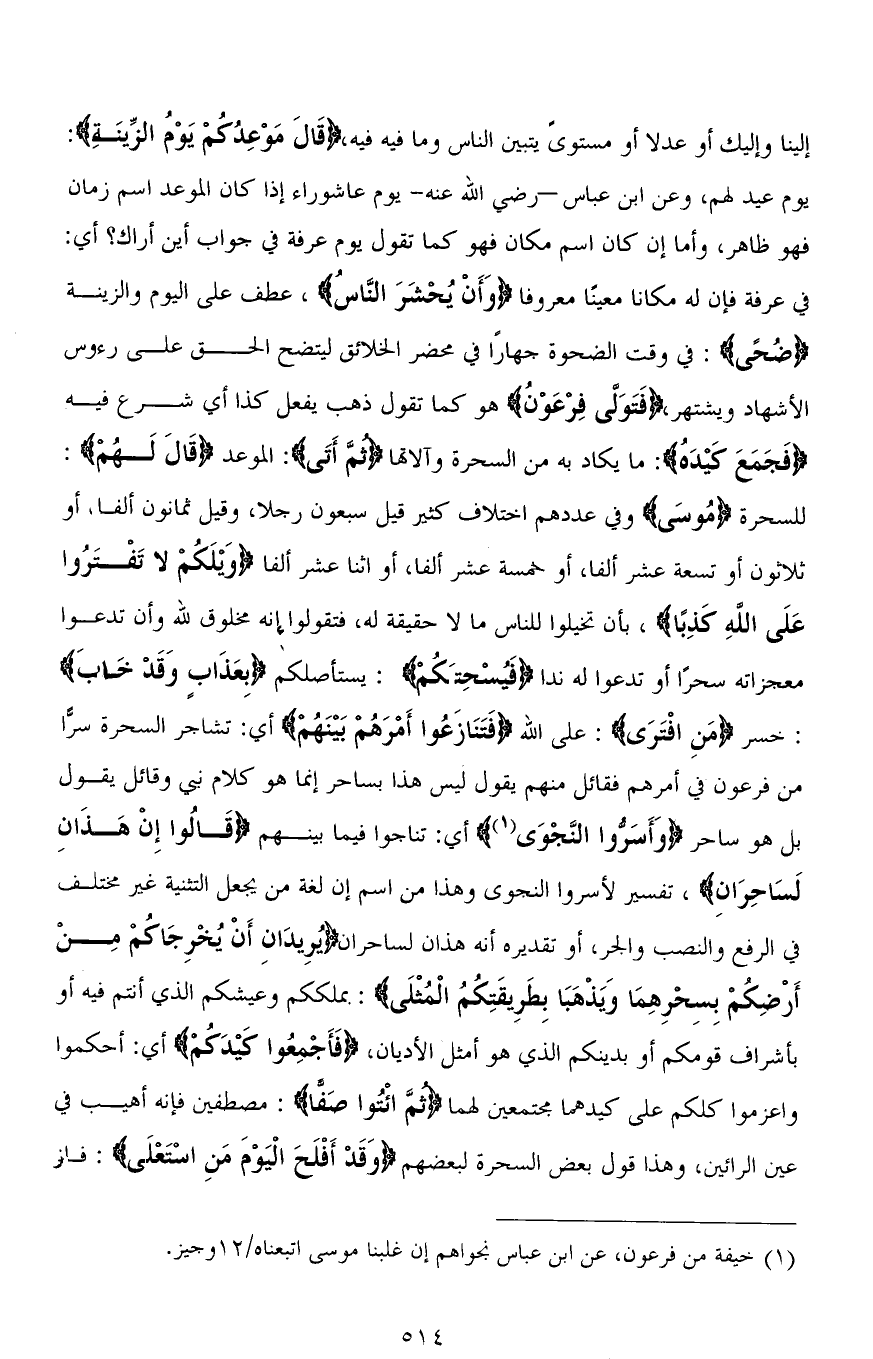 إلينا وإليك أو عدلا أو مستوىً يتبين الناس وما فيه فيه،﴿قَالَ مَوْعِدُكُمْ يَوْمُ الزِّينَةِ﴾:
يوم عيد لهم، وعن ابن عباس –رضي الله عنه- يوم عاشوراء إذا كان الموعد اسم زمان
فهو ظاهر، وأما إن كان اسم مكان فهو كما تقول يوم عرفة في جواب أين أراك؟ أي:
في عرفة فإن له مكانا معينًا معروفا ﴿وَأَنْ يُحْشَرَ النَّاسُ﴾ ، عطف على اليوم والزينة
﴿ضُحًى﴾ : في وقت الضحوة جهارًا في محضر الخلائق ليتضح الحق على رءوس
الأشهاد ويشتهر،﴿فَتَوَلَّى فِرْعَوْنُ﴾ هو كما تقول ذهب يفعل كذا أي شرع فيه
﴿فَجَمَعَ كَيْدَهُ﴾: ما يكاد به من السحرة وآلاتها ﴿ثُمَّ أَتَى﴾: الموعد ﴿قَالَ لَهُمْ﴾ :
للسحرة ﴿مُوسَى﴾ وفي عددهم اختلاف كثير قيل سبعون رجلا، وقيل ثمانون ألفا، أو
ثلاثون أو تسعة عشر ألفا، أو خمسة عشر ألفا، أو اثنا عشر ألفا ﴿وَيْلَكُمْ لا تَفْتَرُوا
عَلَى اللَّهِ كَذِبًا﴾ ، بأن تخيلوا للناس ما لا حقيقة له، فتقولوا إنه مخلوق لله وأن تدعوا
معجزاته سحرًا أو تدعوا له ندا ﴿فَيُسْحِتَكُمْ﴾ : يستأصلكم ﴿بِعَذَابٍ وَقَدْ خَابَ﴾
: خسر ﴿مَنِ افْتَرَى﴾ : على الله ﴿فَتَنَازَعُوا أَمْرَهُمْ بَيْنَهُمْ﴾ أي: تشاجر السحرة سرًّا
من فرعون في أمرهم فقائل منهم يقول ليس هذا بساحر إنما هو كلام نبي وقائل يقول
بل هو ساحر ﴿وَأَسَرُّوا النَّجْوَى(١)﴾ أي: تناجوا فيما بينهم ﴿قَالُوا إِنْ هَذَانِ
لَسَاحِرَانِ﴾ ، تفسير لأسروا النجوى وهذا من اسم إن لغة من يجعل التثنية غير مختلف
في الرفع والنصب والجر، أو تقديره أنه هذان لساحران﴿يُرِيدَانِ أَنْ يُخْرِجَاكُمْ مِنْ
أَرْضِكُمْ بِسِحْرِهِمَا وَيَذْهَبَا بِطَرِيقَتِكُمُ الْمُثْلَى﴾ : بملككم وعيشكم الذي أنتم فيه أو
بأشراف قومكم أو بدينكم الذي هو أمثل الأديان، ﴿فَأَجْمِعُوا كَيْدَكُمْ﴾ أي: أحكموا
واعزموا كلكم على كيدهما مجتمعين لهما ﴿ثُمَّ ائْتُوا صَفًّا﴾ : مصطفين فإنه أهيب في
عين الرائين، وهذا قول بعض السحرة لبعضهم ﴿وَقَدْ أَفْلَحَ الْيَوْمَ مَنِ اسْتَعْلَى﴾ : فاز
(١) خيفة من فرعون، عن ابن عباس نجواهم إن غلبنا موسى اتبعناه/١٢وجيز.
٥١٤